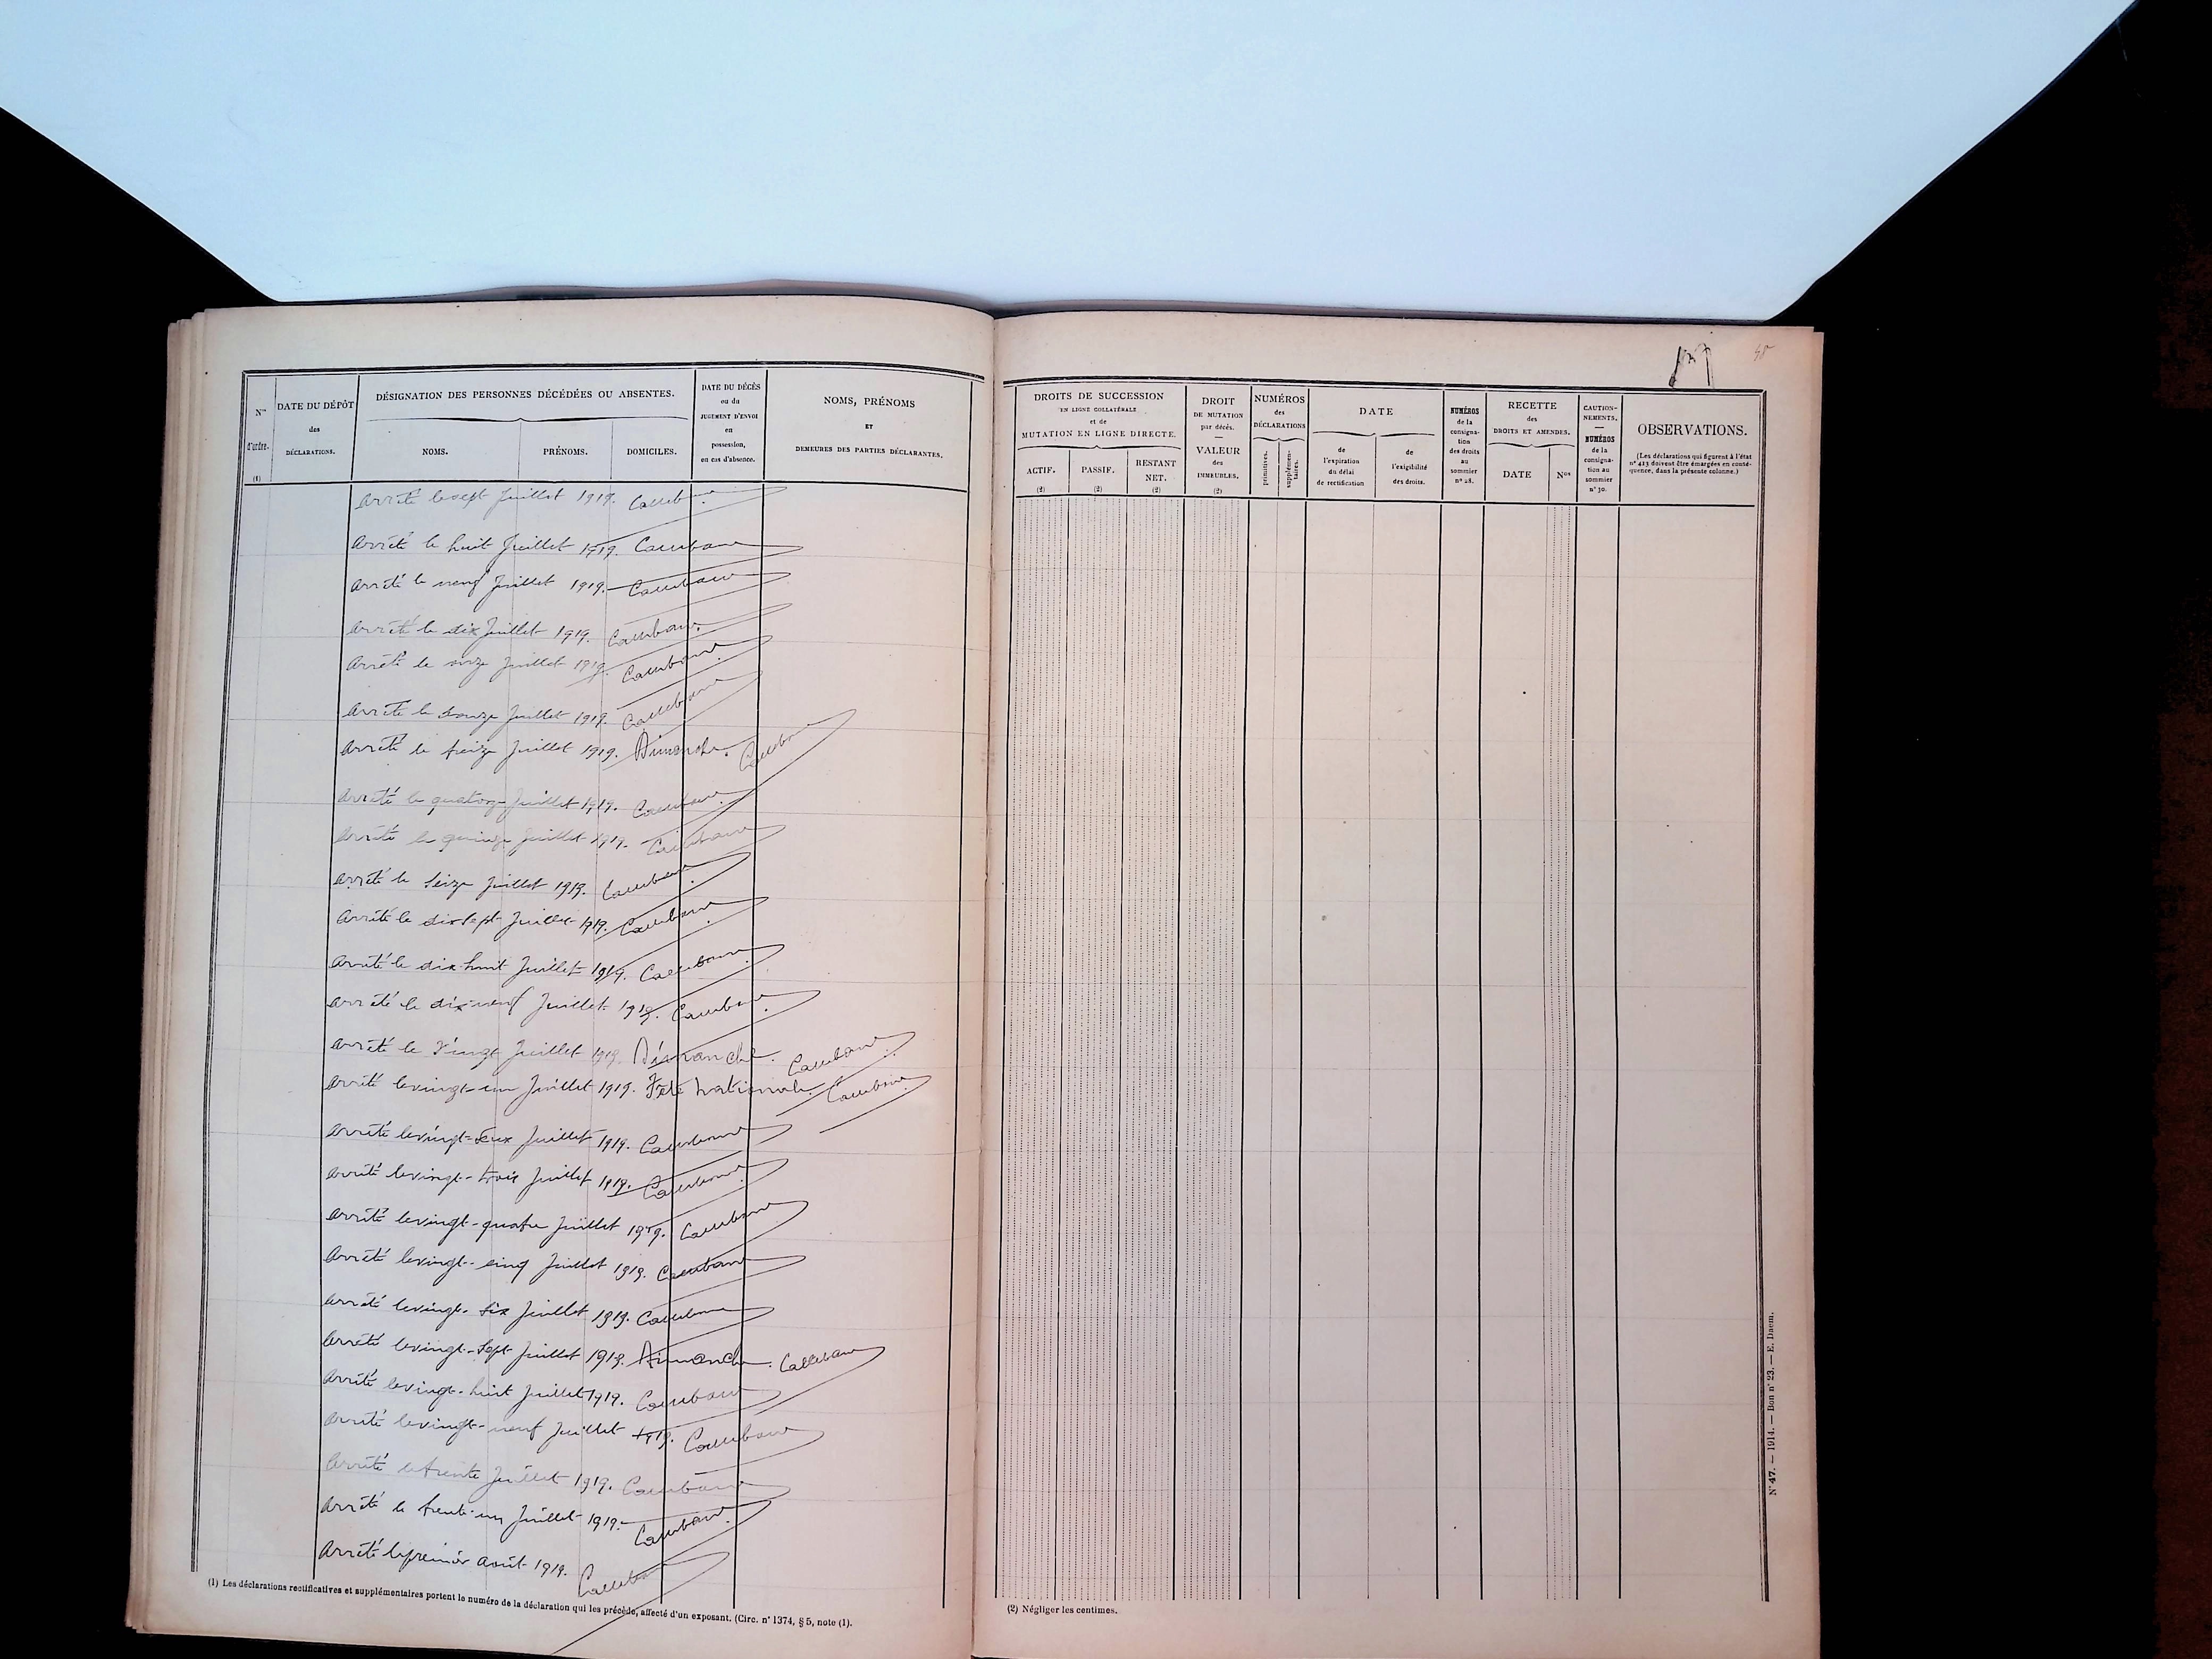 N°s d'ordre. (1)
DATE DU DÉPÔT des DÉCLARATIONS.
DÉSIGNATION DES PERSONNES DÉCÉDÉES OU ABSENTES.
NOMS.
PRÉNOMS.
DOMICILES.
DATE DU DÉCÈS ou du JUGEMENT D'ENVOI en possession, en cas d'absence.
NOMS, PRÉNOMS ET DEMEURES DES PARTIES DÉCLARANTES.
Arrêté le sept Juillet 1919.
Arrêté le huit Juillet 1919.
Arrêté le neuf Juillet 1919.
Arrêté le dix Juillet 1919.
Arrêté le onze Juillet 1919.
Arrêté le douze Juillet 1919.
Arrêté le treize Juillet 1919. Dimanche.
Arrêté le quatorze Juillet 1919.
Arrêté le quinze Juillet 1919.
Arrêté le seize Juillet 1919.
Arrêté le dix sept Juillet 1919.
Arrêté le dix-huit Juillet 1919.
Arrêté le dix-neuf Juillet 1919.
Arrêté le Vingt Juillet 1919. Dimanche.
Arrêté le vingt-un Juillet 1919. Fête Nationale.
Arrêté le vingt-deux Juillet 1919.
Arrêté le vingt-trois Juillet 1919.
Arrêté le vingt-quatre Juillet 1919.
Arrêté le vingt-cinq Juillet 1919.
Arrêté le vingt-six Juillet 1919.
Arrêté le vingt-sept Juillet 1919. Dimanche.
Arrêté le vingt-huit Juillet 1919.
Arrêté le vingt-neuf Juillet 1919.
Arrêté le trente Juillet 1919.
Arrêté le trente-un Juillet 1919.
Arrêté le premier Août 1919.
(1) Les déclarations rectificatives et supplémentaires portent le numéro de la déclaration qui les précède, affecté d'un exposant. (Circ. n° 1374, § 5, note (1).
DROITS DE SUCCESSION EN LIGNE COLLATÉRALE et de MUTATION EN LIGNE DIRECTE.
ACTIF. (2)
PASSIF. (2)
RESTANT NET. (2)
DROIT DE MUTATION par décès. — VALEUR des IMMEUBLES. (2)
NUMÉROS des DÉCLARATIONS
primitives.
supplémentaires.
DATE
de l'expiration du délai de rectification
de l'exigibilité des droits.
NUMÉROS de la consignation des droits au sommier n° 28.
RECETTE des DROITS ET AMENDES.
DATE
N°s
CAUTIONNEMENTS. — NUMÉROS de la consignation au sommier n° 30.
OBSERVATIONS.
(Les déclarations qui figurent à l'état n° 413 doivent être émargées en conséquence, dans la présente colonne.)
(2) Négliger les centimes.
N° 47. — 1914. — Bon n° 23. — E. Daem.